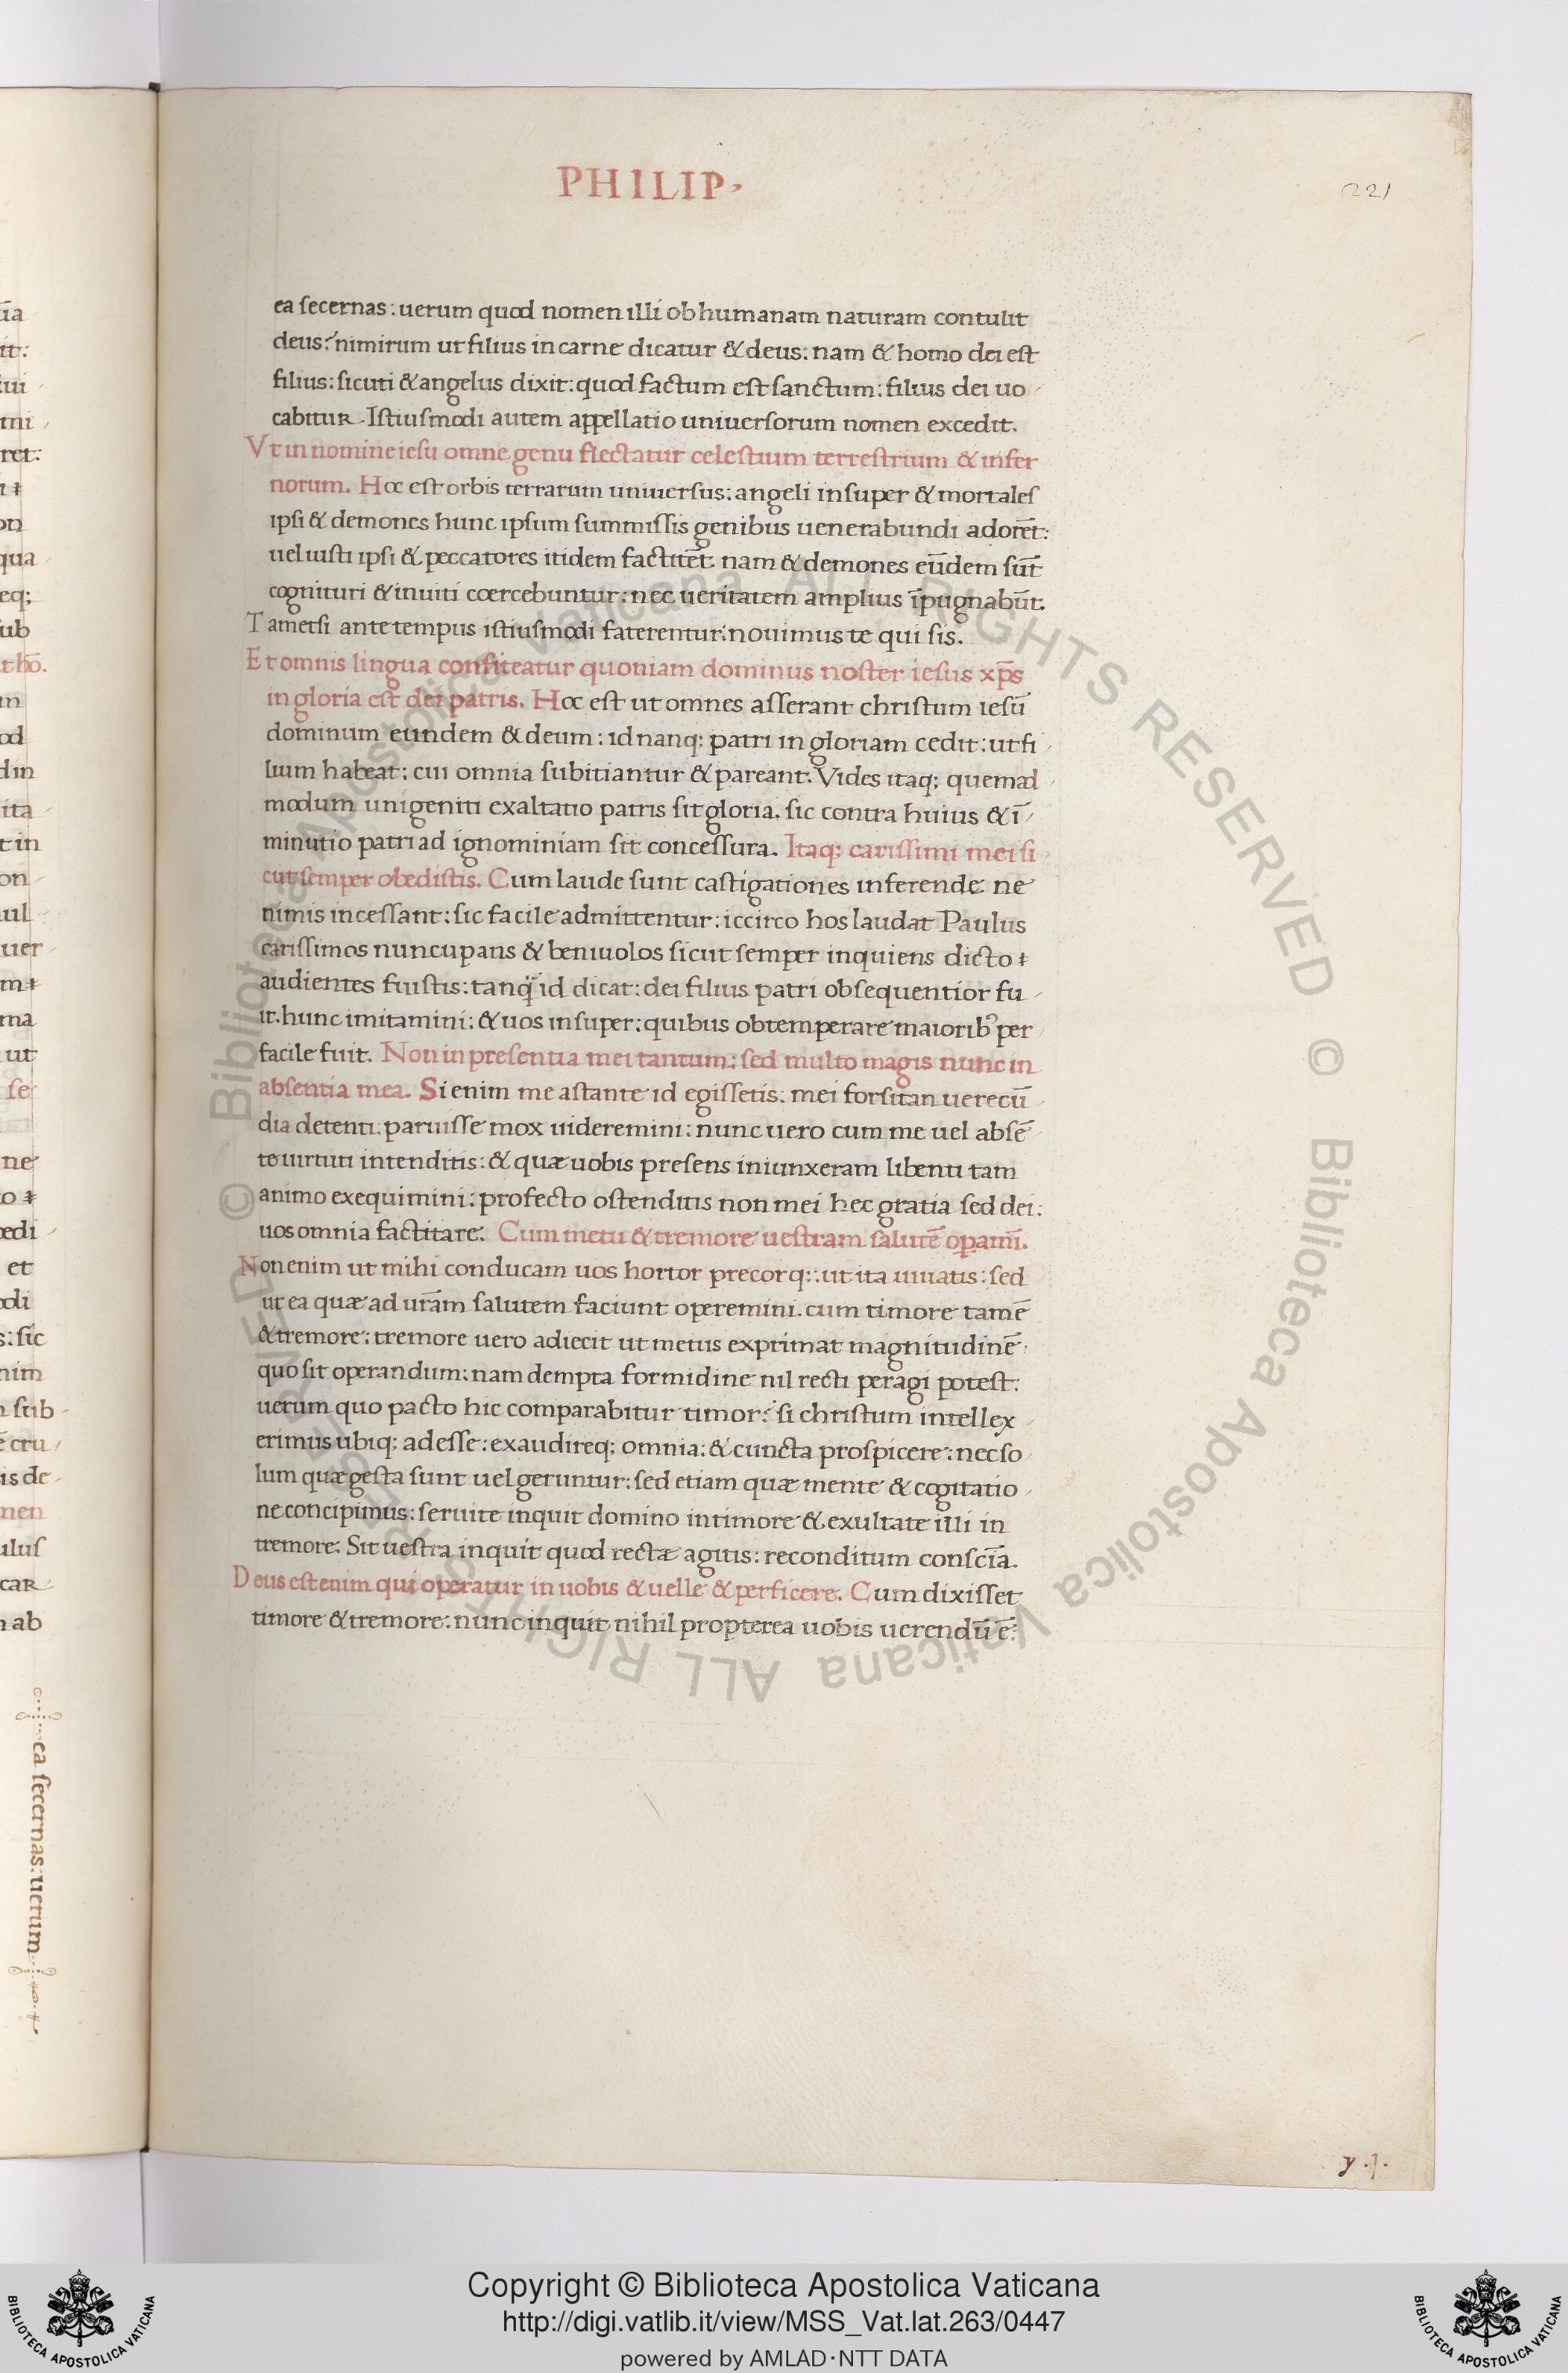 PHILIP.
221
ea secernas: uerum quod nomen illi ob humanam naturam contulit
deus? nimirum ut filius in carne dicatur & deus: nam & homo dei est
filius: sicuti & angelus dixit: quod factum est sanctum: filius dei uo
cabitur. Istiusmodi autem appellatio uniuersorum nomen excedit.
Vt in nomine iesu omne genu flectatur celestium terrestrium & infer
norum. Hoc est orbis terrarum uniuersus: angeli insuper & mortales
ipsi & demones hunc ipsum summissis genibus uenerabundi adorēt:
uel iusti ipsi & peccatores itidem factitēt. nam & demones eūdem sūt
cognituri & inuiti coercebuntur: nec ueritatem amplius īpugnabūt.
Tametsi ante tempus istiusmodi faterentur: nouimus te qui sis.
Et omnis lingua confiteatur quoniam dominus noster iesus xp̄s
in gloria est dei patris. Hoc est ut omnes asserant christum iesū
dominum eundem & deum: id nanq; patri in gloriam cedit: ut fi
lium habeat: cui omnia subitiantur & pareant. Vides itaq; quemad
modum unigeniti exaltatio patris sit gloria. sic contra huius & ī
minutio patri ad ignominiam sit concessura. Itaq; carissimi mei si
cut semper obedistis. Cum laude sunt castigationes inferende ne
nimis incessant: sic facile admittentur: iccirco hos laudat Paulus
carissimos nuncupans & beniuolos sicut semper inquiens dicto
audientes fuistis: tanq̄ id dicat: dei filius patri obsequentior fu
it. hunc imitamini: & uos insuper: quibus obtemperare maiorib9 per
facile fuit. Non in presentia mei tantum: sed multo magis nunc in
absentia mea. Si enim me astante id egissetis: mei forsitan uerecū
dia detenti: paruisse mox uideremini: nunc uero cum me uel absē
te uirtuti intenditis: & quæ uobis presens iniunxeram libenti tam
animo exequimini: profecto ostenditis non mei hec gratia sed dei:
uos omnia factitare. Cum metu & tremore uestram salutē opamī.
Non enim ut mihi conducam uos hortor precorq;: ut ita uiuatis: sed
ut ea quæ ad ur̄am salutem faciunt operemini. cum timore tamē
& tremore: tremore uero adiecit ut metus exprimat magnitudinē:
quo sit operandum: nam dempta formidine nil recti peragi potest:
uerum quo pacto hic comparabitur timor? si christum intellex
erimus ubiq; adesse: exaudireq; omnia: & cuncta prospicere: nec so
lum quæ gesta sunt uel geruntur: sed etiam quæ mente & cogitatio
ne concipimus: seruite inquit domino in timore & exultate illi in
tremore. Sit uestra inquit quod rectæ agitis: reconditum consciā.
Deus est enim qui operatur in uobis & uelle & perficere. Cum dixisset
timore & tremore: nunc inquit nihil propterea uobis uerendū ē:
y .1.
ea secernas: uerum
Copyright © Biblioteca Apostolica Vaticana
http://digi.vatlib.it/view/MSS_Vat.lat.263/0447
powered by AMLAD·NTT DATA
BIBLIOTECA APOSTOLICA VATICANA
BIBLIOTECA APOSTOLICA VATICANA
© Biblioteca Apostolica Vaticana ALL RIGHTS RESERVED © Biblioteca Apostolica Vaticana ALL RIGHTS RESERVED